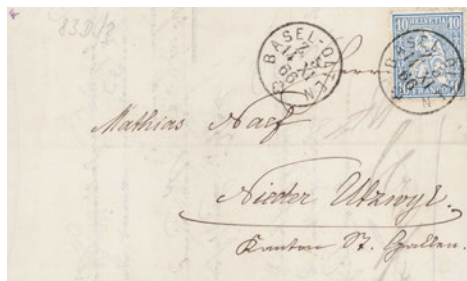 83.D/2
BASEL-OLTEN
14 XI
66
10 HELVETIA 10
FRANCO
Herrn
Mathias Naef
Nieder Utzwyl.
Kanton St. Gallen.